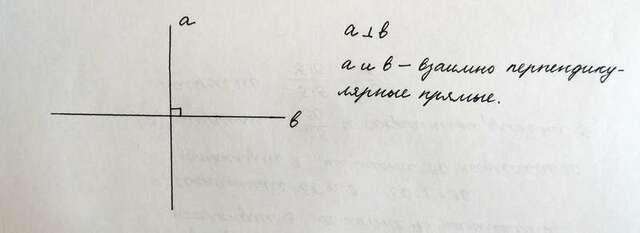 а
а ⊥ в
а и в – взаимно перпендику-
лярные прямые.
в